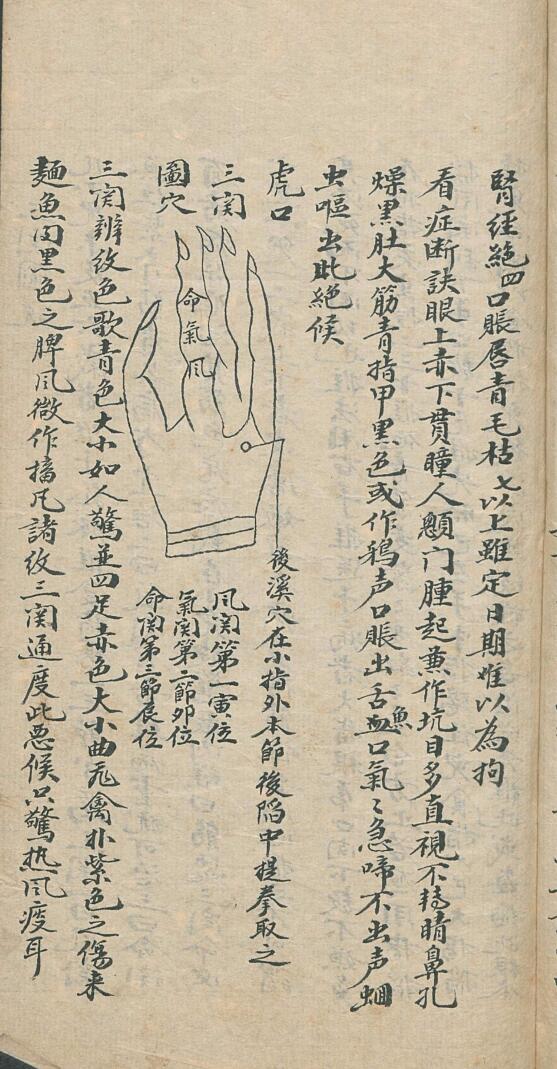 腎經絶四口賬唇青毛枯七以上雖定日期惟以為拘
看症断訣眼上赤下貫瞳人顖门腫起兼作坑目多直視不轉睛鼻孔
燥黒肚大筋青指甲黒色或作鴉声口賬出舌魚血口氣〻急啼不出声蛔
虫嘔出此絶候
虎口
三関
圖穴
命氣风
後溪穴在小指外本節後陷中提拳取之
风関第一寅位
氣関第二節卯位
命関第三節辰位
三関辨纹色歌青色大小如人驚並四足赤色大小曲飛禽扑紫色之傷来
麵魚肉黒色之脾风微作搐凡諸纹三関通度此惡候只驚热风疲耳